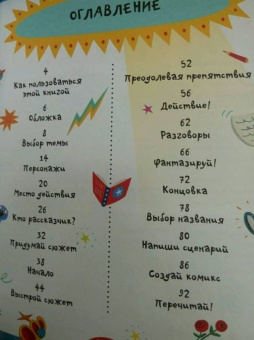 ОГЛАВЛЕНИЕ
4
Как пользоваться
этой книгой
6
Обложка
8
Выбор темы
14
Персонажи
20
Место действия
26
Кто рассказчик?
32
Придумай сюжет
38
Начало
44
Выстрой сюжет
52
Преодолевая препятствия
56
Действие!
62
Разговоры
66
Фантазируй!
72
Концовка
78
Выбор названия
80
Напиши сценарий
86
Создай комикс
92
Перечитай!